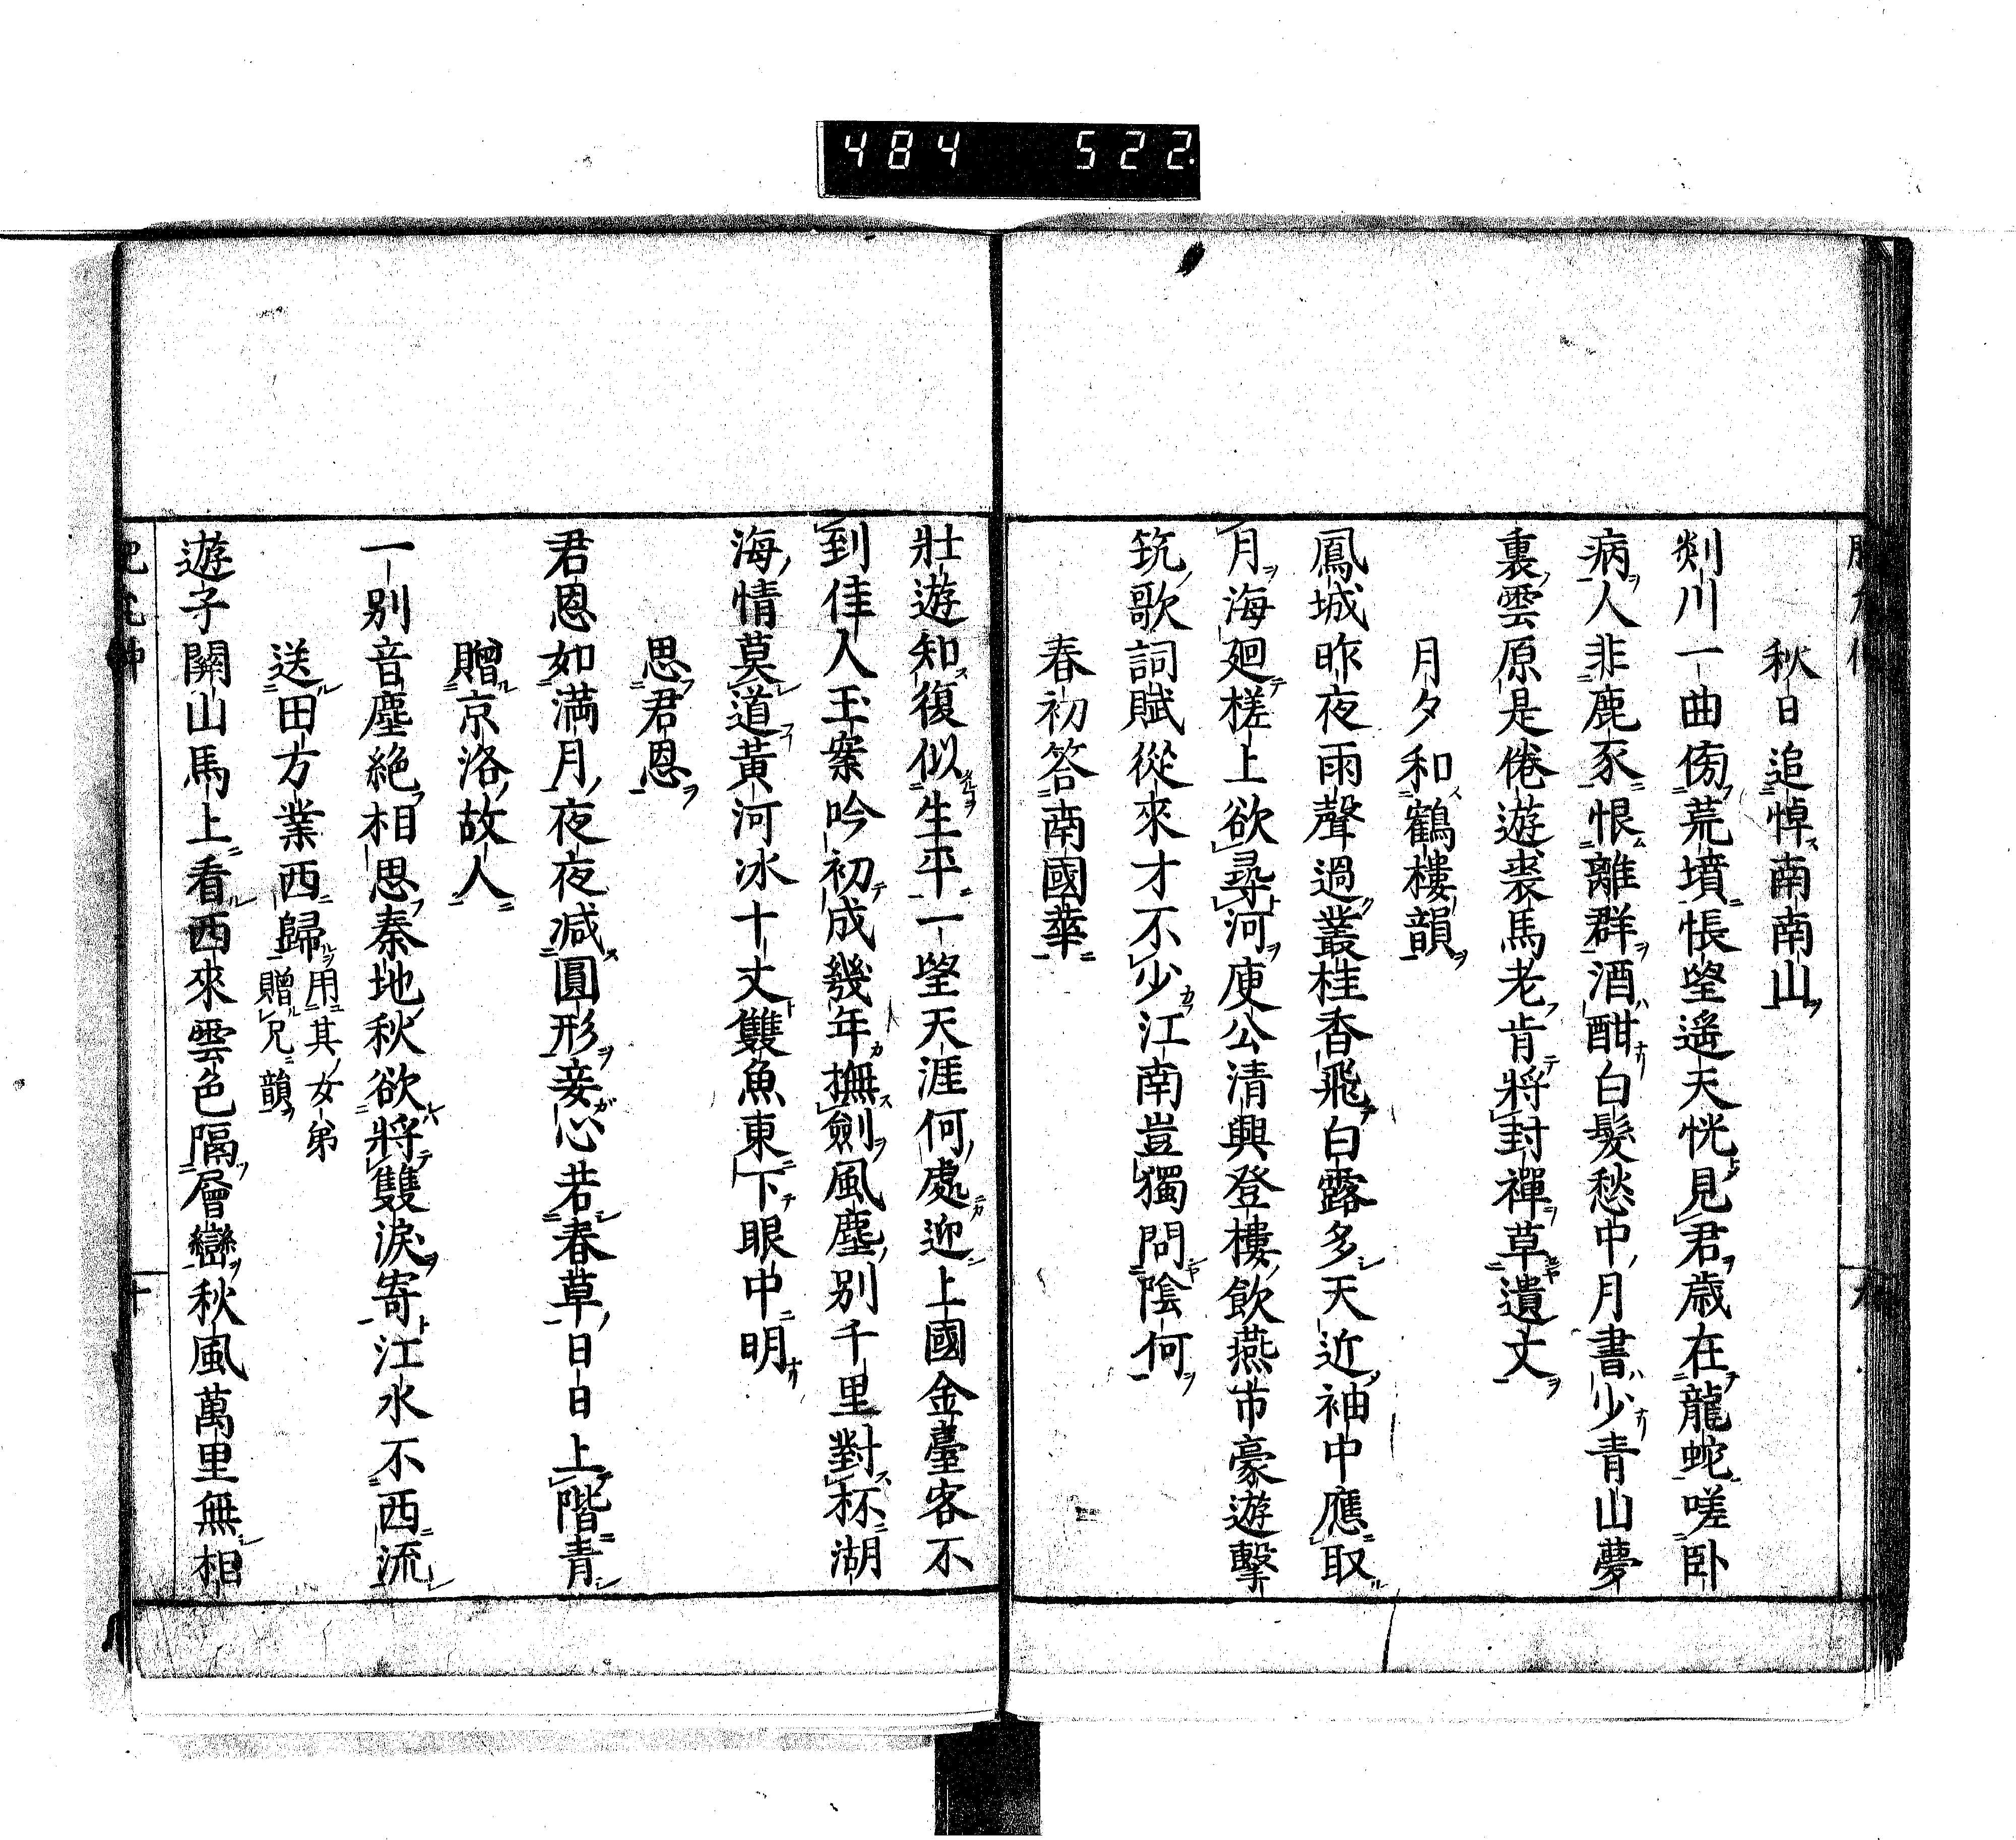 484 522
秋日追悼南南山
剡川一曲傍荒墳悵望遙天恍見君歳在龍蛇嗟臥
病人非鹿豕恨離群酒酣白髮愁中月書少青山夢
裏雲原是倦遊裘馬老肯將封禪草遺文
月夕和鶴樓韻
鳳城昨夜雨聲過叢桂香飛白露多天近袖中應取
月海廻槎上欲尋河庾公清興登樓飲燕市豪遊擊
筑歌詞賦從來才不少江南豈獨問陰何
春初答南國華
壯遊知復似生平一望天涯何處迎上國金臺客不
到佳人玉案吟初成幾年撫劍風塵別千里對杯湖
海情莫道黃河冰十丈雙魚東下眼中明
思君恩
君恩如滿月夜夜減圓形妾心若春草日日上階青
贈京洛故人
一別音塵絶相思秦地秋欲將雙淚寄江水不西流
送田方業西歸用其女弟
贈兄韻
遊子關山馬上看西來雲色隔層巒秋風萬里無相
十